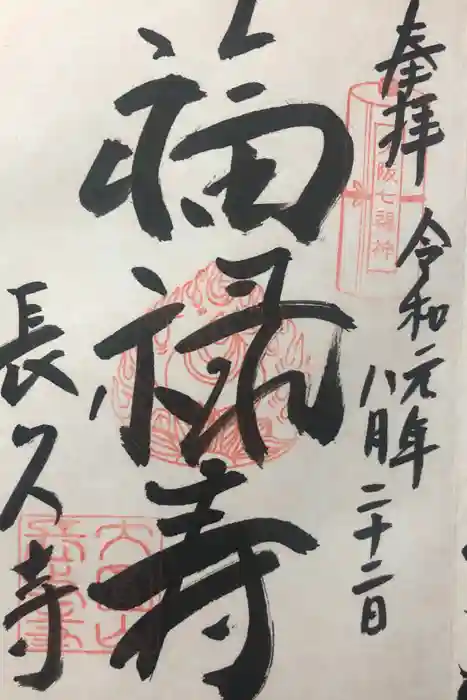 奉拝
令和元年
八月二十二日
阪七福神
福禄寿
長久寺